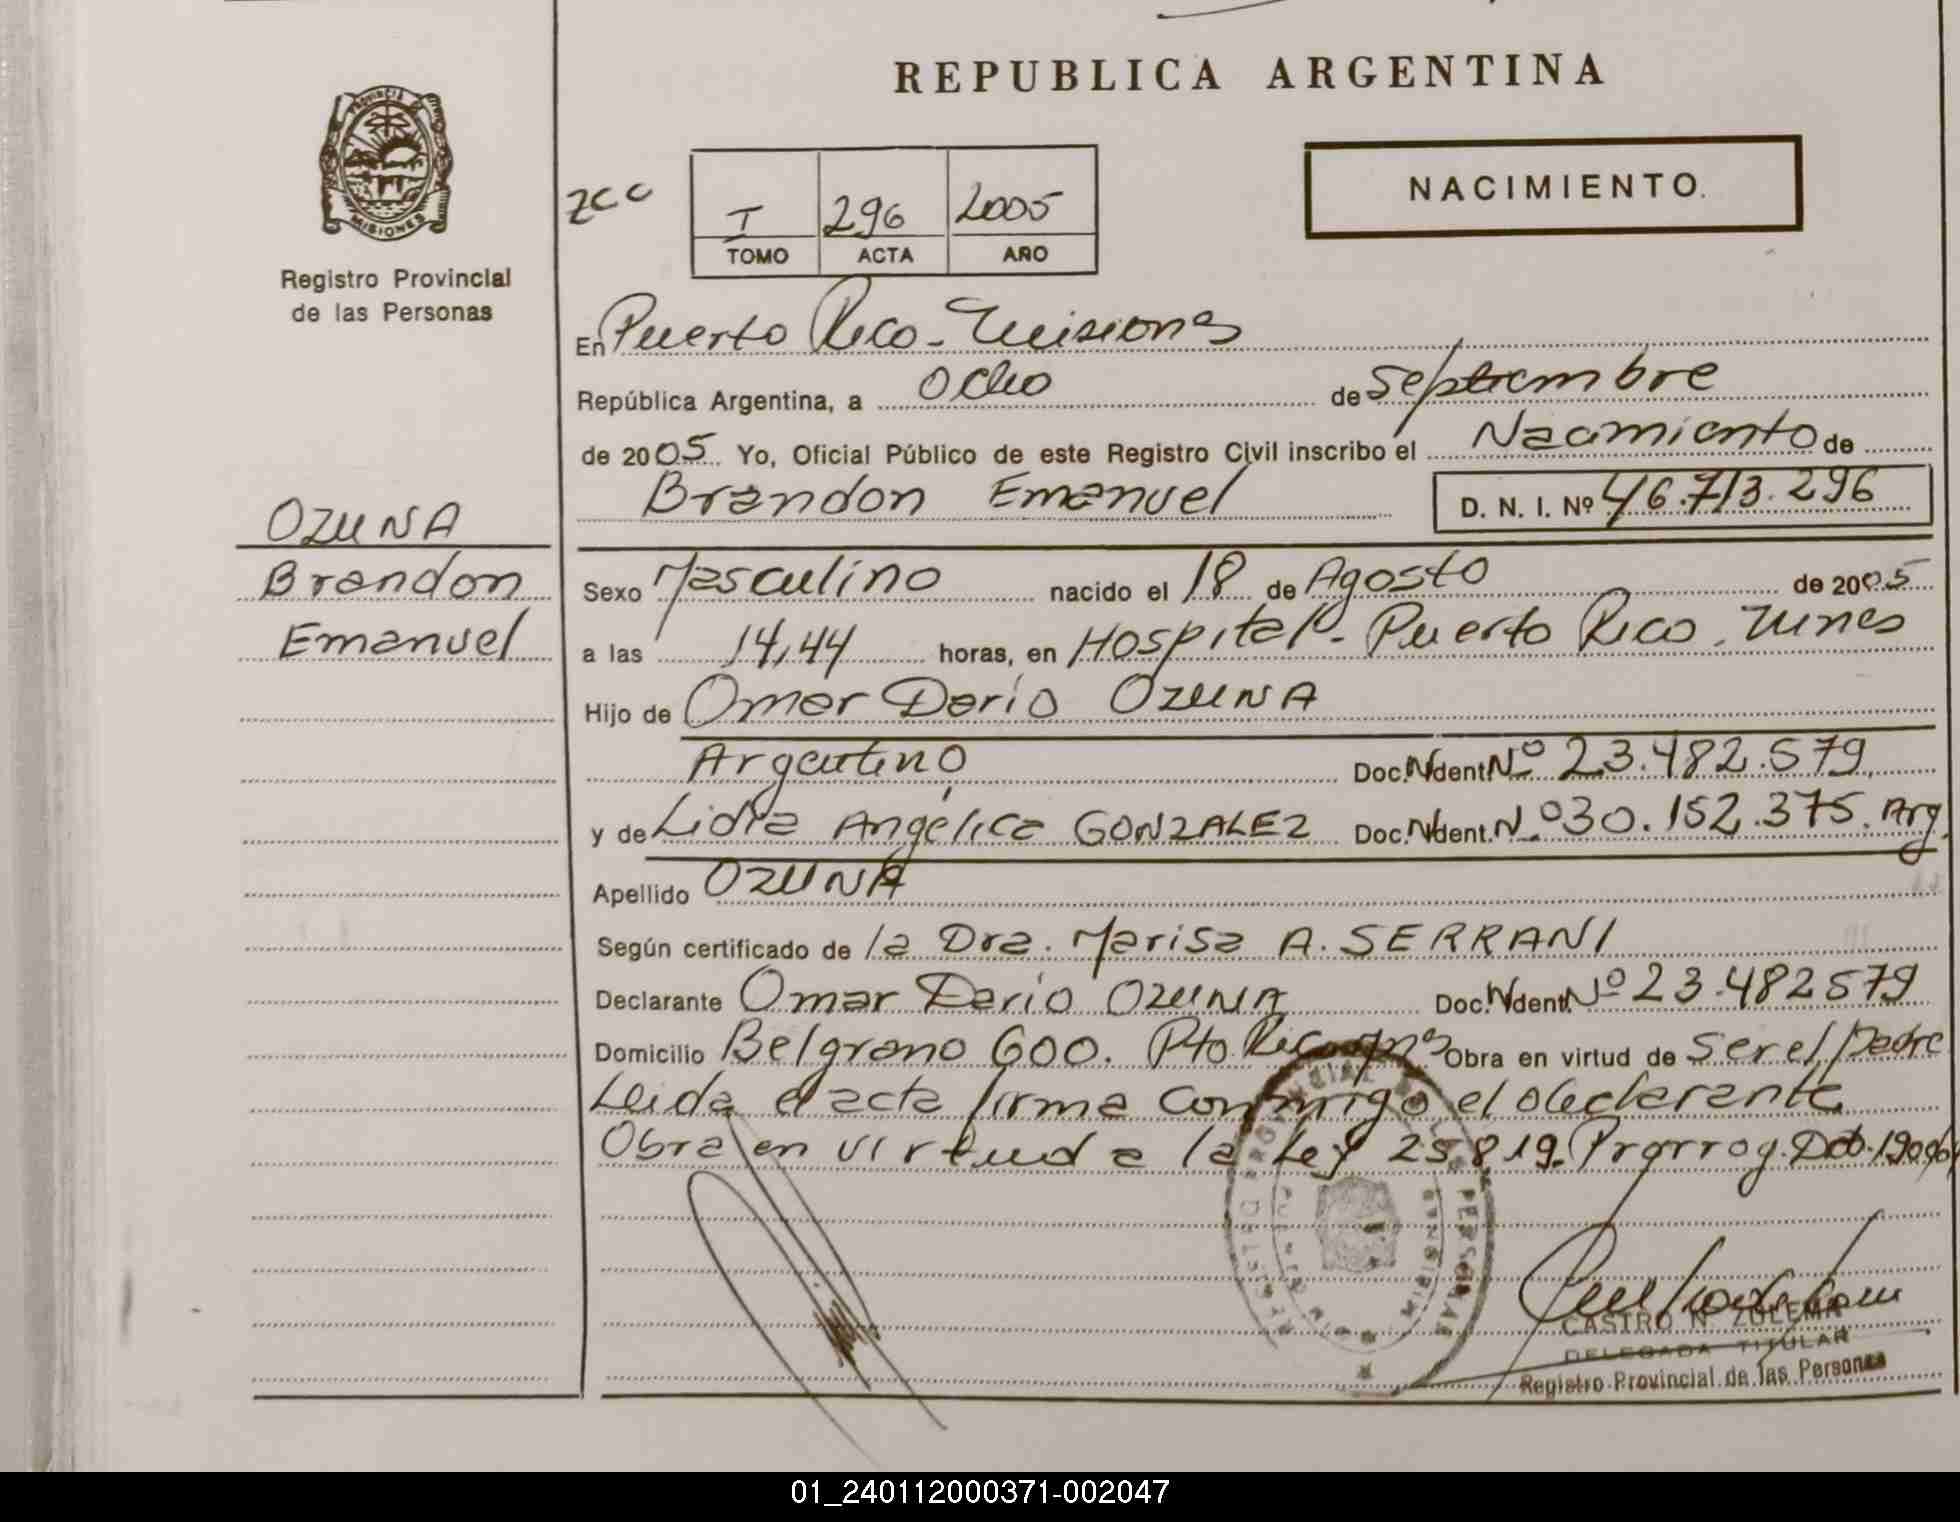 REPUBLICA ARGENTINA
PROVINCIA
MISIONES
Registro Provincial
de las Personas
zcc
I 296 2005
TOMO ACTA AÑO
NACIMIENTO.
En Puerto Rico - Misiones
República Argentina, a Ocho de Septiembre
de 2005 Yo, Oficial Público de este Registro Civil inscribo el Nacimiento de
Brandon Emanuel D. N. I. Nº 46.713.296
OZUNA
Brandon
Emanuel
Sexo Masculino nacido el 18 de Agosto de 2005
a las 14,44 horas, en Hospital - Puerto Rico, Mnes
Hijo de Omar Dario OZUNA
Argentino, Doc. Ident. Nº 23.482.579
y de Lidia Angélica GONZALEZ Doc. Ident. N.º 30.152.375. Arg.
Apellido OZUNA
Según certificado de la Dra. Marisa A. SERRANI
Declarante Omar Dario OZUNA Doc. Ident. Nº 23.482579
Domicilio Belgrano 600. Pto. Rico Mnes Obra en virtud de Ser el Padre
Leida el acta firma conmigo el declarante.
Obra en virtud a la Ley 25819. Prorrog. Dto.
CASTRO N. ZULEMA
DELEGADA TITULAR
Registro Provincial de las Personas
01_240112000371-002047